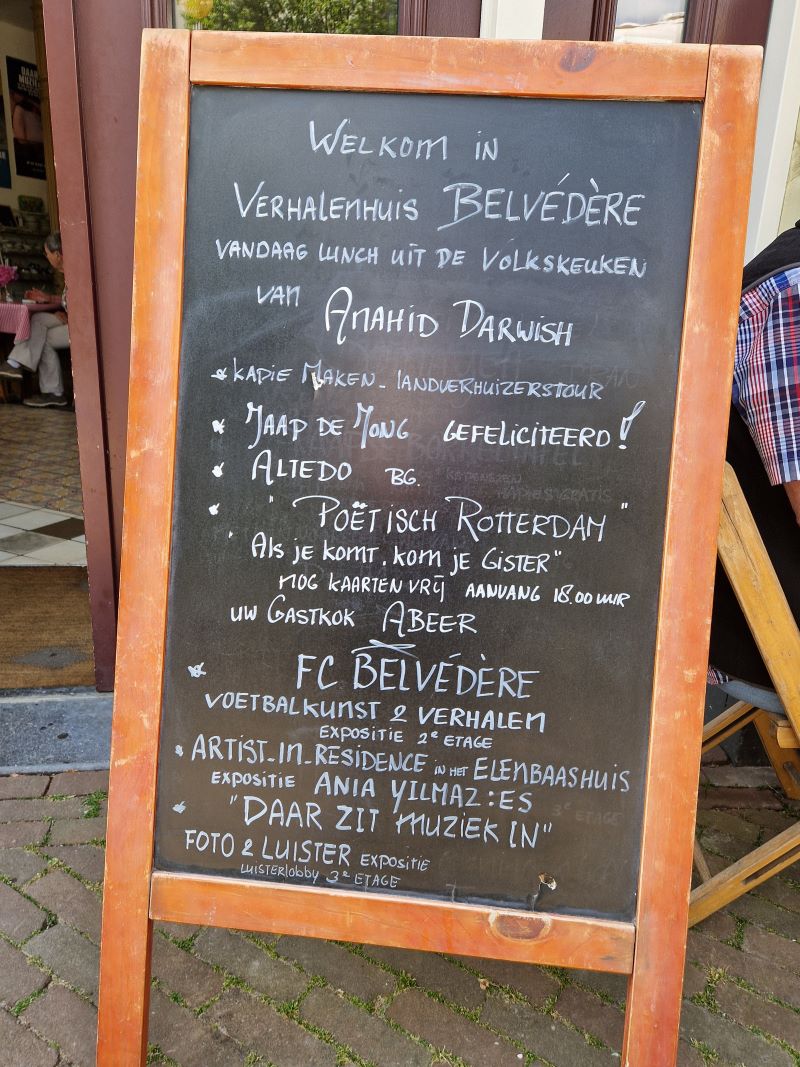 WELKOM IN
VERHALENHUIS BELVÉDÈRE
VANDAAG LUNCH UIT DE VOLKSKEUKEN
VAN ANAHID DARWISH
* KAPIE MAKEN - LANDVERHUIZERSTOUR
* JAAP DE JONG GEFELICITEERD!
* ALTEDO BG.
* "POËTISCH ROTTERDAM"
"Als je KOMT, KOM je GISTER"
NOG KAARTEN VRIJ AANVANG 18.00 UUR
UW GASTKOK ABEER
* FC BELVÉDÈRE
VOETBALKUNST & VERHALEN
EXPOSITIE 2e ETAGE
* ARTIST-IN-RESIDENCE IN HET ELENBAASHUIS
EXPOSITIE ANIA YILMAZ:ES
* "DAAR ZIT MUZIEK IN"
FOTO & LUISTER EXPOSITIE
LUISTERLOBBY 3e ETAGE